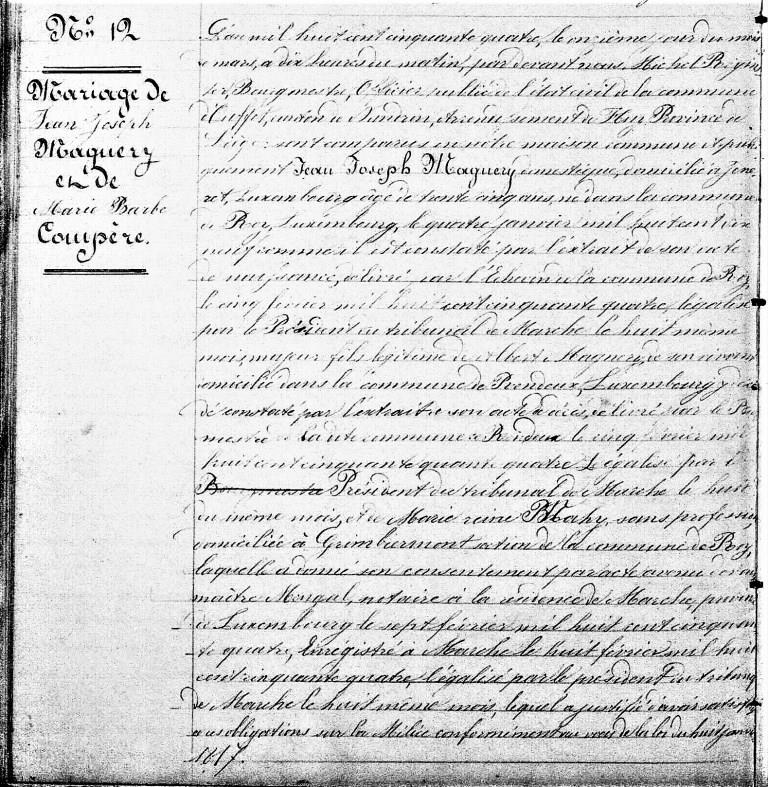 N° 12
Mariage de
Jean Joseph
Maguery
et de
Marie Barbe
Compère.
L'an mil huit cent cinquante quatre, le onzième jour du mois
de mars, à dix heures du matin, par devant nous, Michel
Bourgmestre, Officier public de l'état civil de la commune
d'Ouffet, canton de Nandrin, arrondissement de Huy Province de
Liège: sont comparus en notre maison commune et publi-
quement Jean Joseph Maguery domestique, domicilié à
Luxembourg âgé de trente cinq ans, né dans la commune
de Roy, Luxembourg, le quatre janvier mil huit cent dix
neuf comme il est constaté par l'extrait de son acte
de naissance, délivré par l'Echevin de la commune de Roy,
le cinq février mil huit cent cinquante quatre, légalisé
par le Président du tribunal de Marche le huit même
mois, majeur fils légitime de Albert Maguery, de son vivant
domicilié dans la commune de Rendeux, Luxembourg y décé-
dé constaté par l'extrait de son acte de décès, délivré par le
mestre de la dite commune de Rendeux le cinq février mil
huit cent cinquante quatre légalisé par le
Président du tribunal de Marche le huit
du même mois, et de Marie Mahy, sans profession,
domiciliée à Grimbiermont section de la commune de Roy,
laquelle a donné son consentement par acte avenu devant
maître notaire à la résidence de Marche, province
de Luxembourg le sept février mil huit cent cinquan-
te quatre, Enregistré à Marche le huit février mil huit
cent cinquante quatre, légalisé par le président du tribunal
de Marche le huit même mois, lequel a justifié d'avoir satisfait
à ses obligations sur la Milice conformément au vœu de la loi du huit janvier
1817.